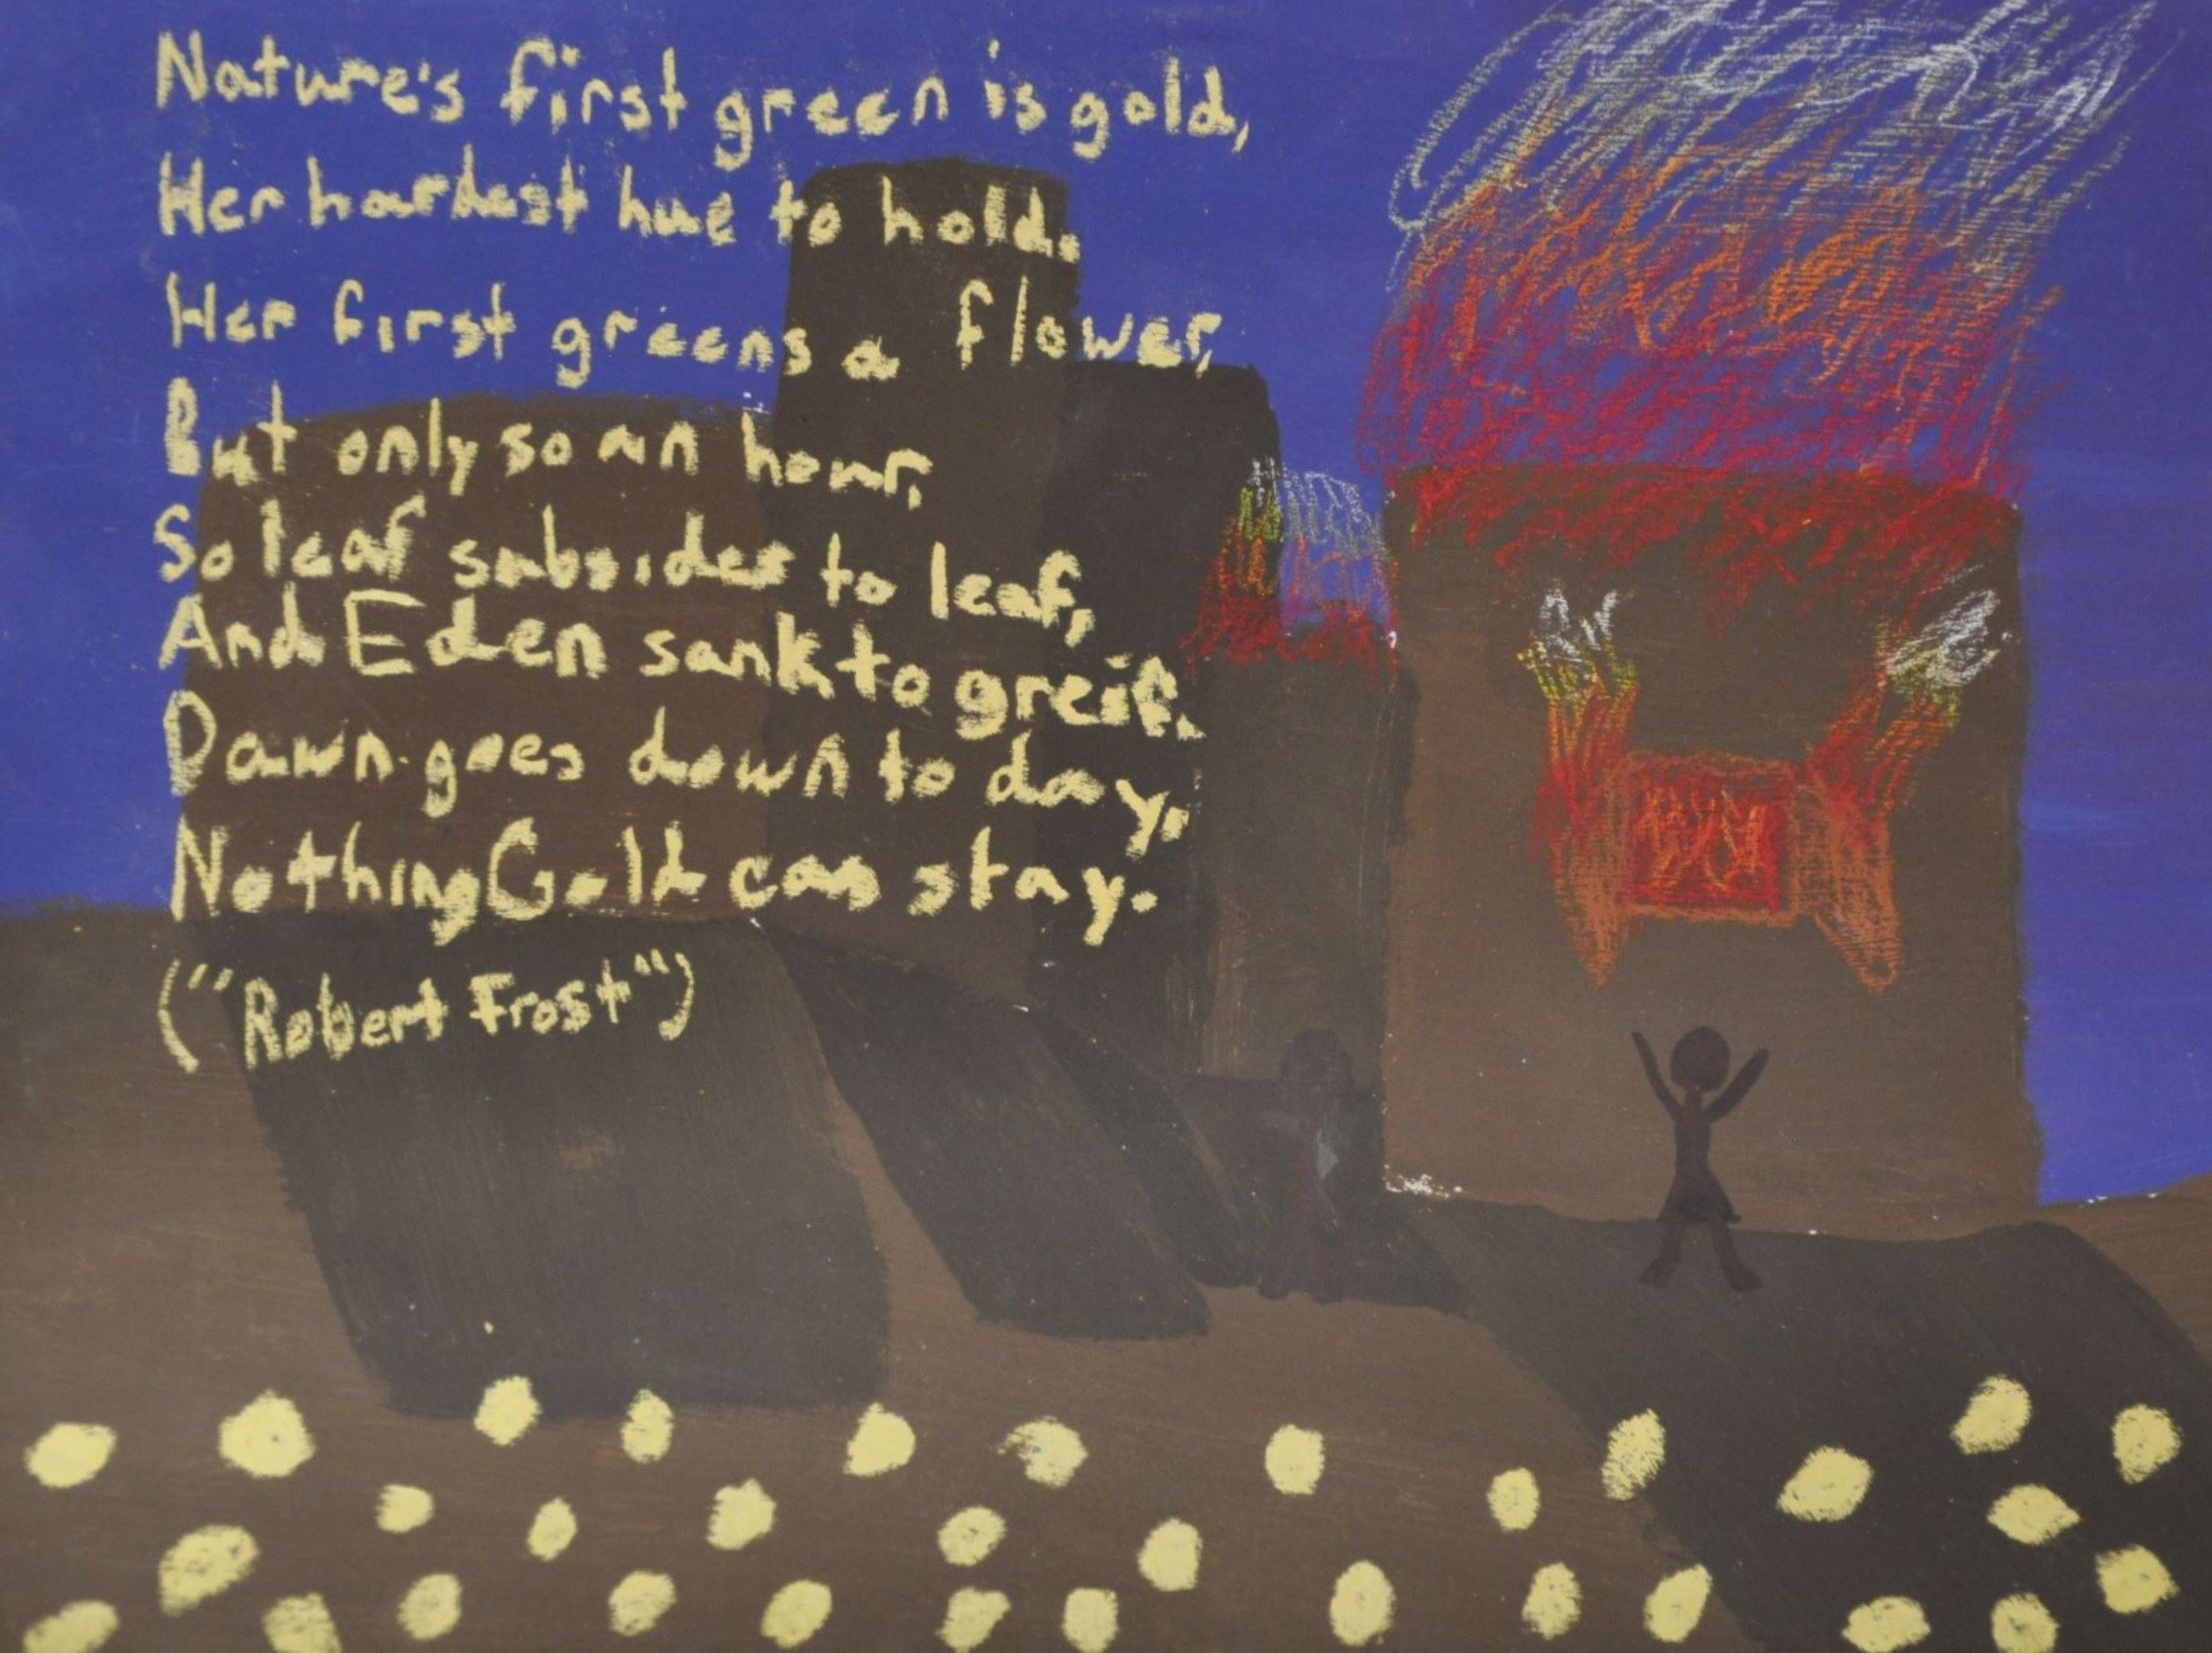 Nature's first green is gold,
Her hardest hue to hold.
Her first greens a flower,
But only so an hour,
So leaf subsides to leaf,
And Eden sank to greif.
Dawn goes down to day.
Nothing Gold can stay.
("Robert Frost")